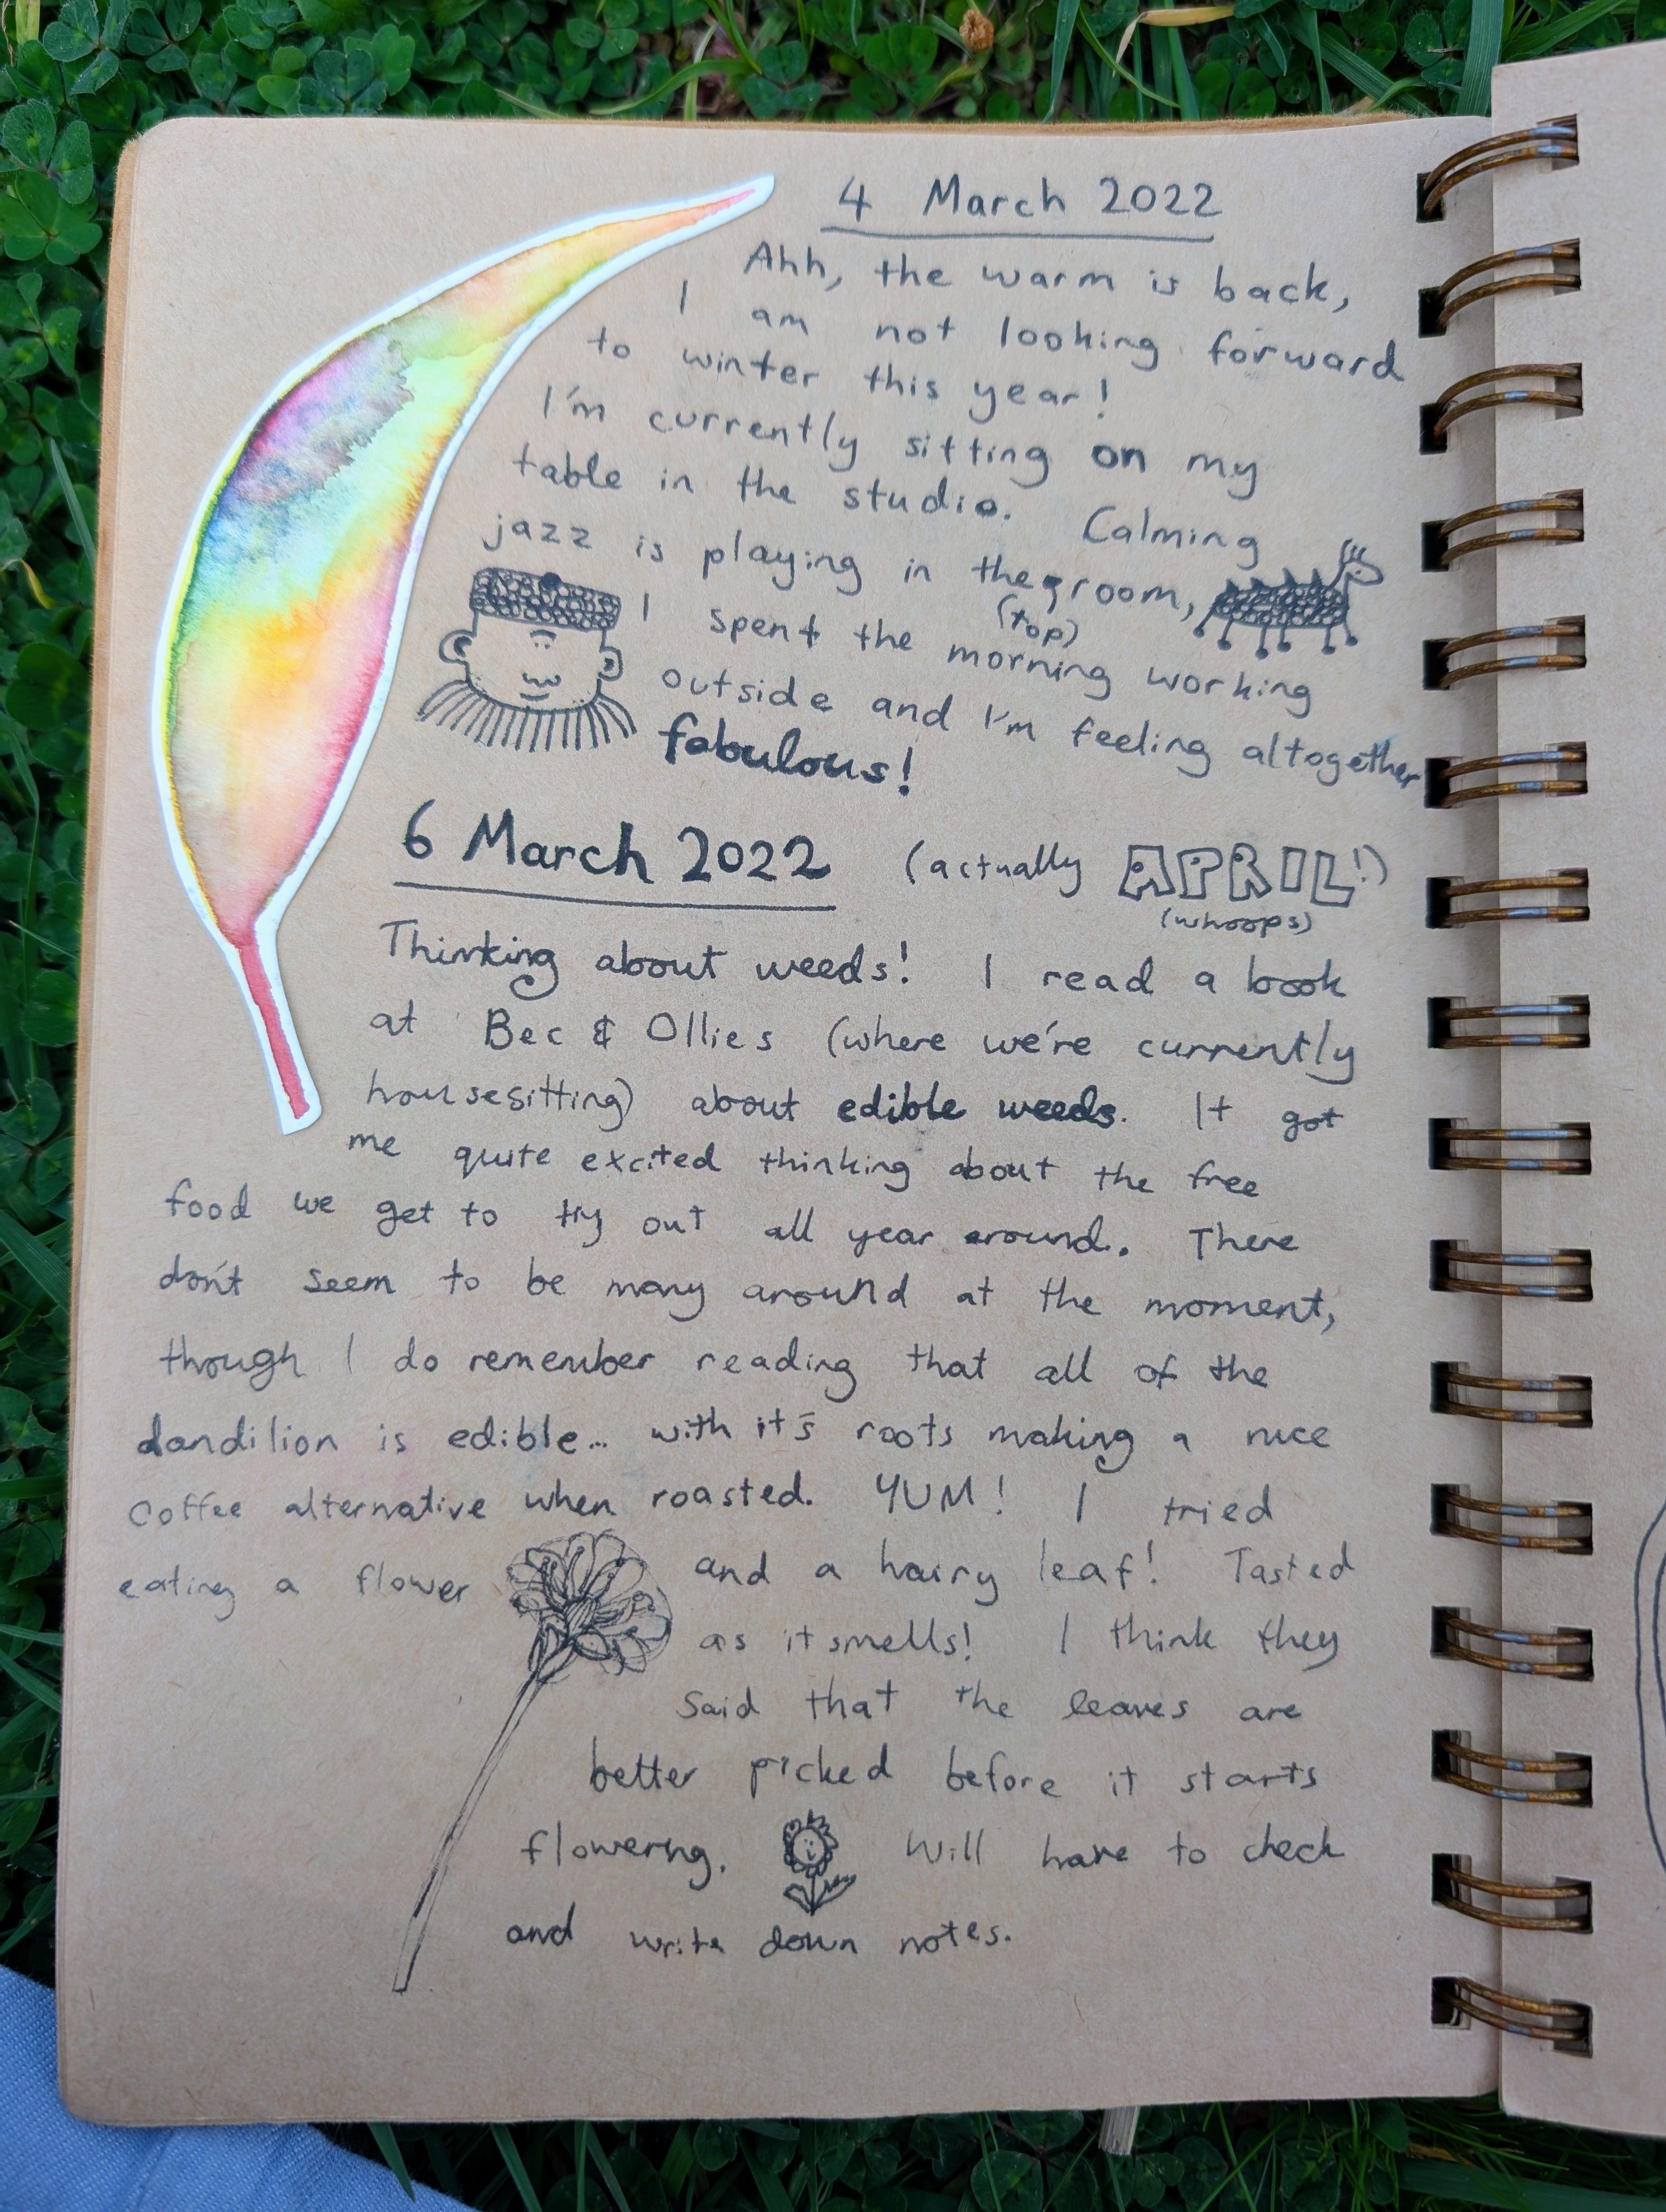 4 March 2022
Ahh, the warm is back,
I am not looking forward
to winter this year!
I'm currently sitting on my
table in the studio. Calming
jazz is playing in the room,
I spent the (top) morning working
outside and I'm feeling altogether
fabulous!
6 March 2022 (actually APRIL!)
(whoops)
Thinking about weeds! I read a book
at Bec & Ollies (where we're currently
housesitting) about edible weeds. It got
me quite excited thinking about the free
food we get to try out all year around. There
don't seem to be many around at the moment,
though I do remember reading that all of the
dandilion is edible... with it's roots making a nice
coffee alternative when roasted. YUM! I tried
eating a flower and a hairy leaf! Tasted
as it smells! I think they
said that the leaves are
better picked before it starts
flowering. Will have to check
and write down notes.